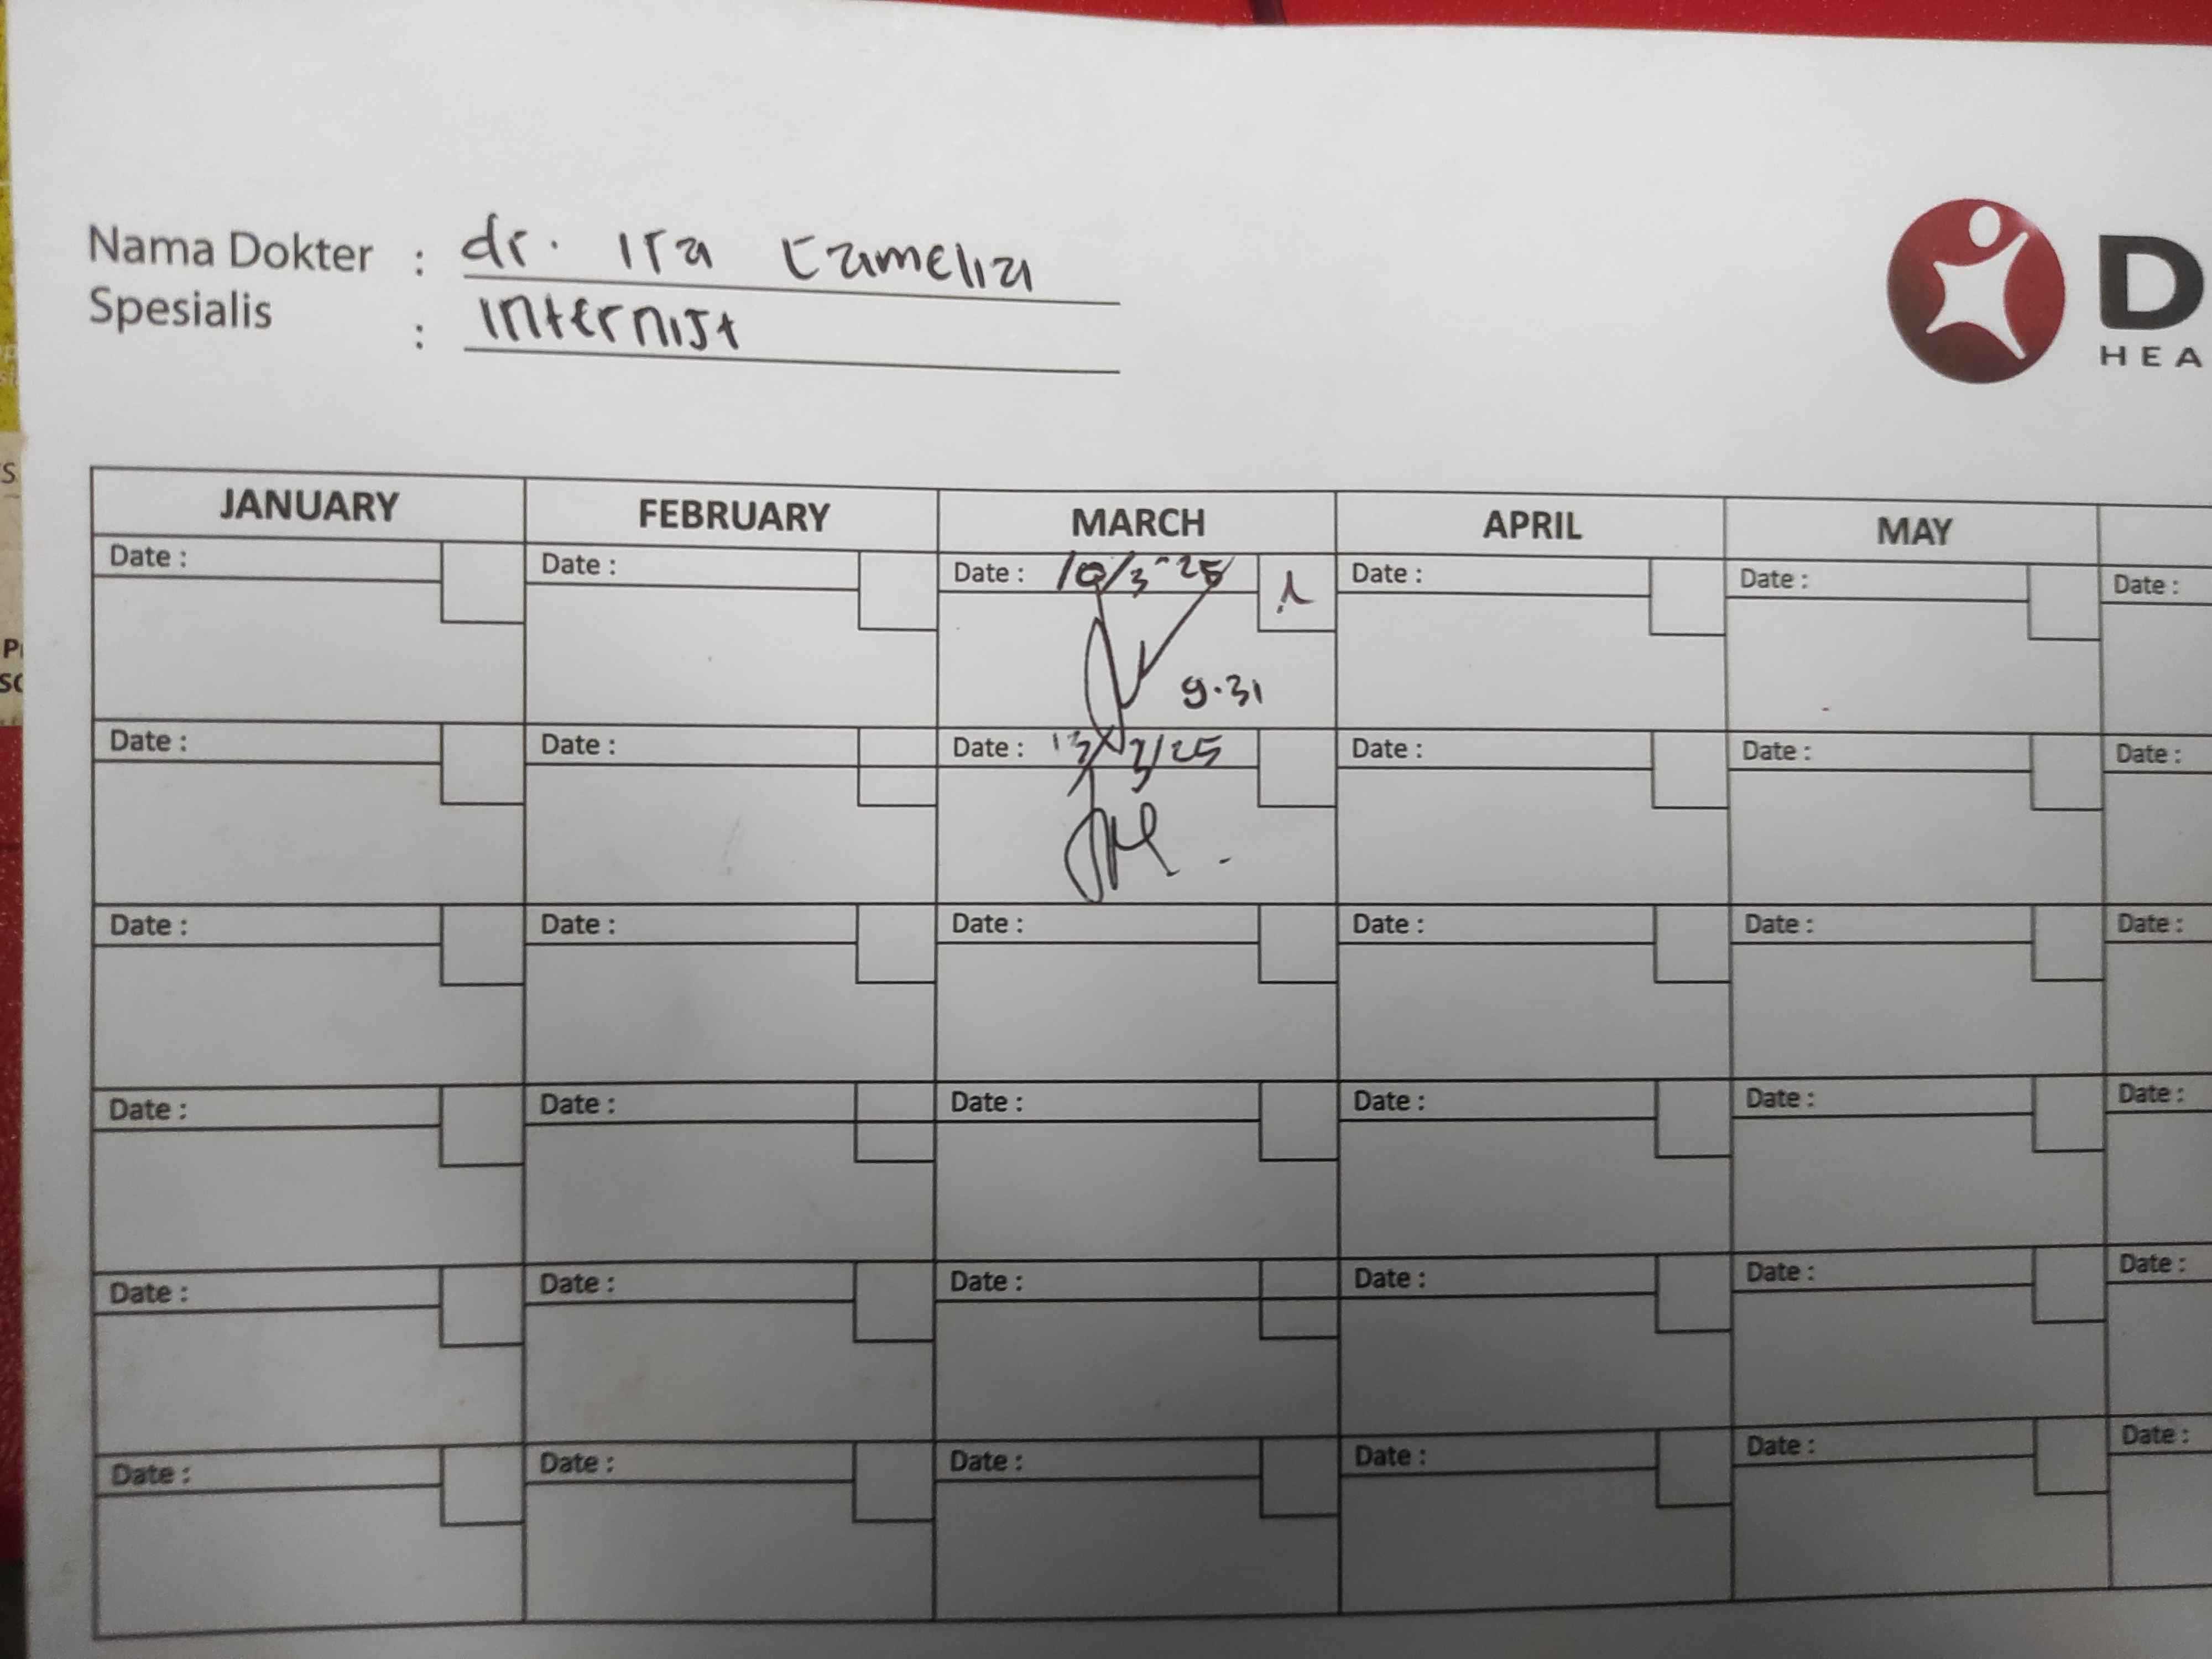 Nama Dokter : dr. Ira Camelia
Spesialis : Internist
D
HEA
JANUARY FEBRUARY MARCH APRIL MAY
Date : Date : Date : 10/3-25 Date : Date : Date :
9.31
Date : Date : Date : 13/3/25 Date : Date : Date :
Date : Date : Date : Date : Date : Date :
Date : Date : Date : Date : Date : Date :
Date : Date : Date : Date : Date : Date :
Date : Date : Date : Date : Date : Date :